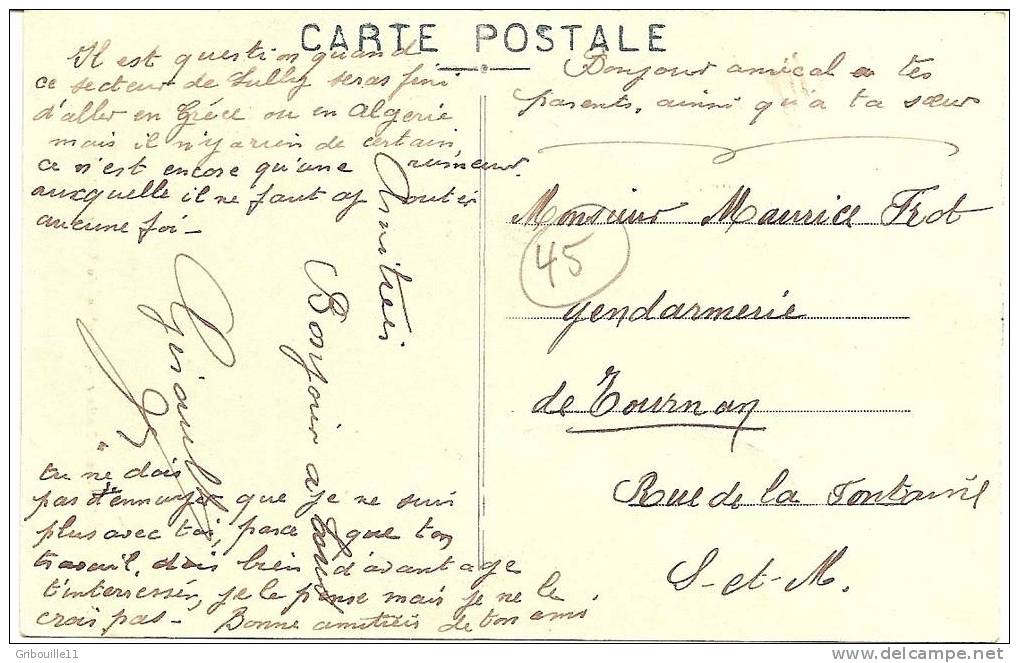 CARTE POSTALE
Il est question quand
ce secteur de Sully seras fini
d'aller en Gréce ou en Algerie
mais il n'y a rien de certain,
ce n'est encore qu'une rumeur.
auxquelle il ne faut ajouter
aucune foi -
Amitiés
Bonjour a tous
tu ne dois
pas t'ennuyer que je ne suis
plus avec toi, parce que ton
travail, dois bien d'avantage
t'interresser, je le pense mais je ne le
crois pas - Bonne amitiés de ton ami.
Bonjour amical a tes
parents, ainsi qu'à ta sœur
Monsieur Maurice Trot
45
gendarmerie
de Tournan
Rue de la Fontaine
S-et-M.
Gribouille11
www.delcampe.net